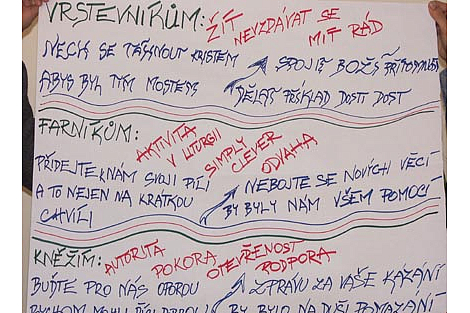 VRSTEVNÍKŮM: ŽÍT
NEVZDÁVAT SE
MÍT RÁD
NECH SE TÁHNOUT KRISTEM
ABYS BYL TÍM MOSTEM
SPOJIT BOŽÍ
DĚLAT PŘÍKLAD DOSTI DOST
FARNÍKŮM:
AKTIVITA
V LITURGII
SIMPLY
CLEVER
ODVAHA
PŘIDEJTE K NÁM SVOJI PÍLI
A TO NEJEN NA KRÁTKOU
CHVÍLI
NEBOJTE SE NOVÝCH VĚCÍ
BY BYLY NÁM VŠEM POMOCÍ
KNĚŽÍM:
AUTORITA
POKORA
OTEVŘENOST
PODPORA
BUĎTE PRO NÁS OPOROU
ZPRÁVU ZA VAŠE KÁZÁNÍ
BYCHOM MOHLI
BY BYLO NA DUŠI POMAZÁNÍ